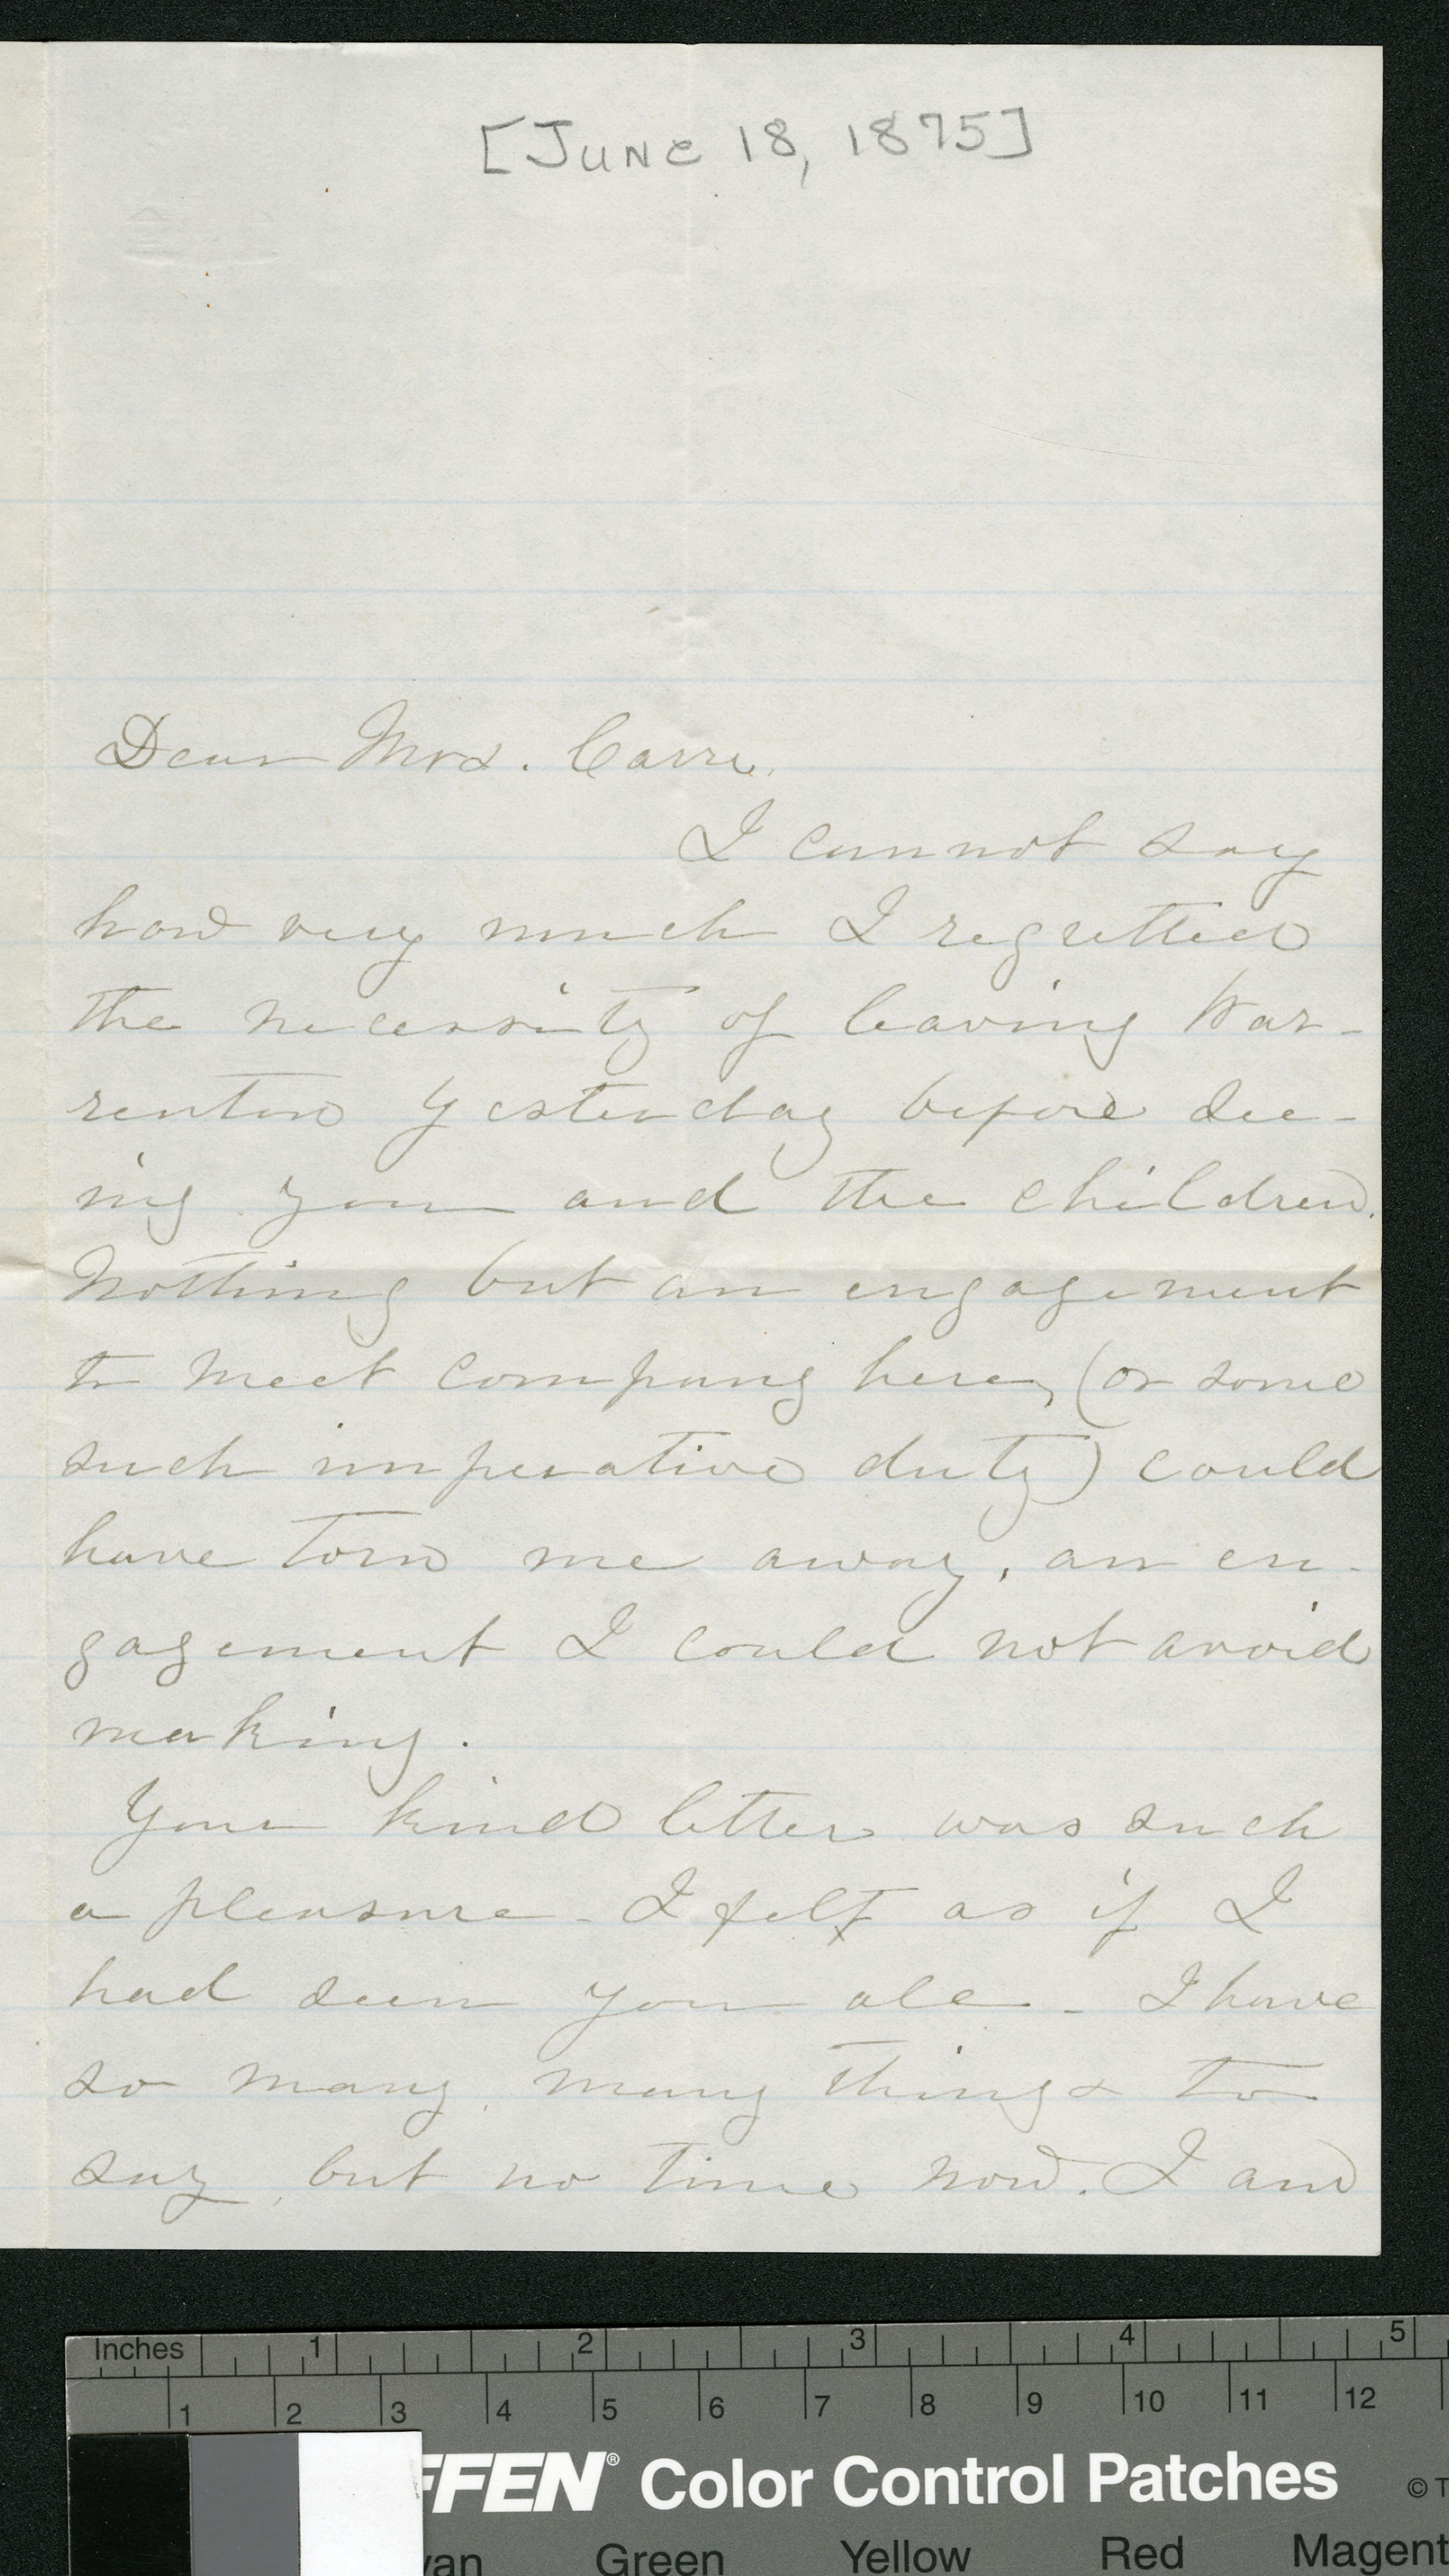 [JUNE 18, 1875]
Dear Mrs. Carr,
I cannot say
how very much I regretted
the necessity of leaving War-
renton yesterday before see-
ing you and the children.
Nothing but an engagement
to meet company here, (or some
such imperative duty) could
have torn me away, an en-
gagement I could not avoid
making.
Your kind letter was such
a pleasure - I felt as if I
had seen you all - I have
so many, many things to
say, but no time now. I am
Inches 1 2 3 4 5
1 2 3 4 5 6 7 8 9 10 11 12
FFEN® Color Control Patches © T
yan Green Yellow Red Magent